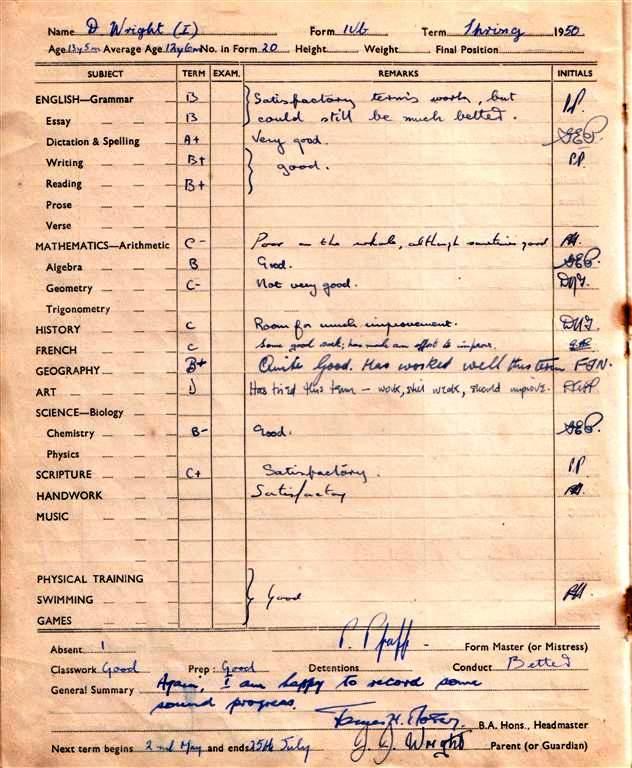 Name D Wright (I) Form IVb Term Spring 1950
Age 13y 5m Average Age 12y 6m No. in Form 20 Height Weight Final Position
SUBJECT TERM EXAM. REMARKS INITIALS
ENGLISH—Grammar B Satisfactory term's work, but P.P.
Essay B could still be much better.
Dictation & Spelling A+ Very good. GEP.
Writing B+ good. P.P.
Reading B+
Prose
Verse
MATHEMATICS—Arithmetic C- Poor on the whole, although sometimes good
Algebra B Good. GEP.
Geometry C- Not very good.
Trigonometry
HISTORY C Room for much improvement.
FRENCH C Some good work; has made an effort to improve.
GEOGRAPHY B+ Quite Good. Has worked well this term FJN.
ART D Has tried this term — work, still weak, should improve.
SCIENCE—Biology
Chemistry B- Good. GEP.
Physics
SCRIPTURE C+ Satisfactory. P.P.
HANDWORK Satisfactory
MUSIC
PHYSICAL TRAINING
SWIMMING Good
GAMES
Absent 1 P. Pfaff Form Master (or Mistress)
Classwork Good Prep: Good Detentions Conduct Better
General Summary Again, I am happy to record some
sound progress.
B.A. Hons., Headmaster
Next term begins 2nd May and ends 25th July J. J. Wright Parent (or Guardian)